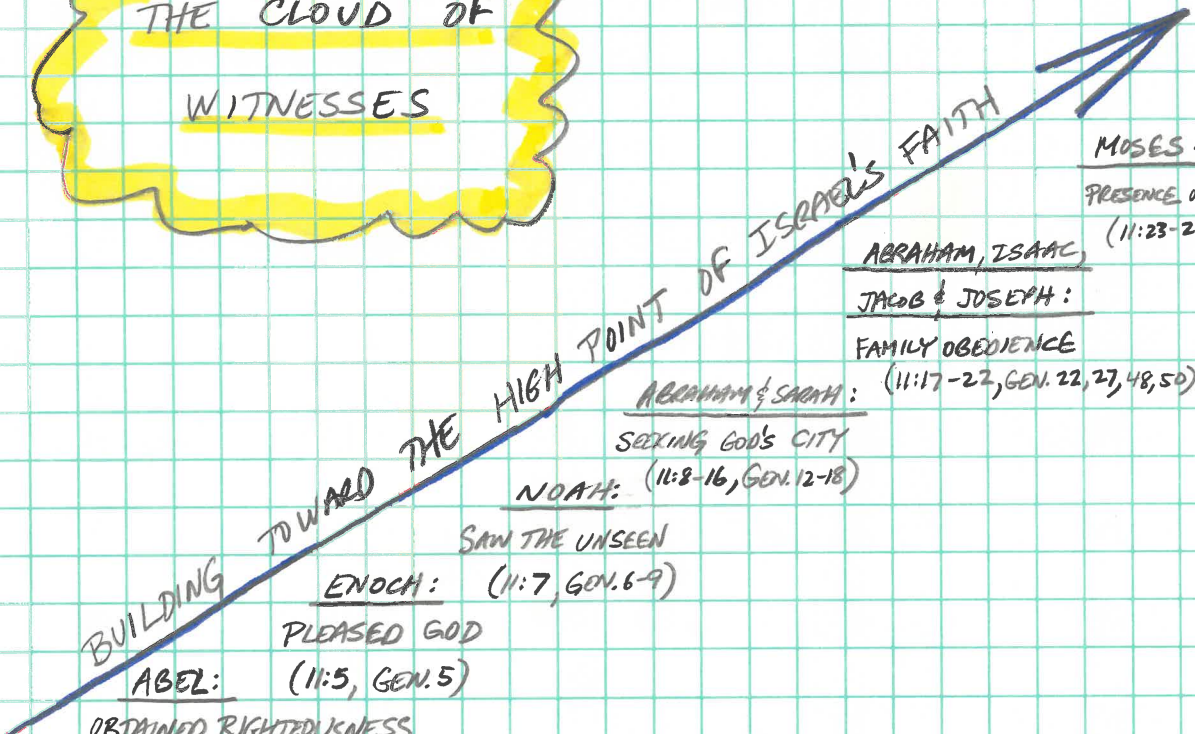 THE CLOUD OF
WITNESSES
BUILDING TOWARD THE HIGH POINT OF ISRAEL'S FAITH
MOSES
PRESENCE
(11:23-2
ABRAHAM, ISAAC,
JACOB & JOSEPH:
FAMILY OBEDIENCE
(11:17-22, GEN. 22, 27, 48, 50)
ABRAHAM & SARAH:
SEEKING GOD'S CITY
(11:8-16, GEN. 12-18)
NOAH:
SAW THE UNSEEN
(11:7, GEN. 6-9)
ENOCH:
PLEASED GOD
(11:5, GEN. 5)
ABEL:
OBTAINED RIGHTEOUSNESS